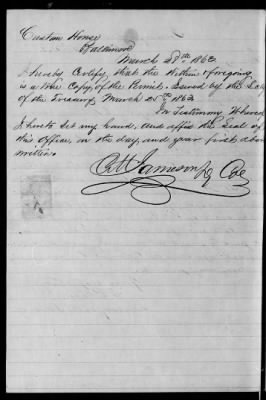 Custom House
Baltimore
March 28th 1863
I hereby Certify, that the Within & foregoing
is a true Copy, of the Permit. Issued by the Secy
of the Treasury, March 25th 1863
In Testimony Whereof
I hereto set my hand, and affix the Seal of
this Office, on the day, and year first above
written
Jameson Dy Col